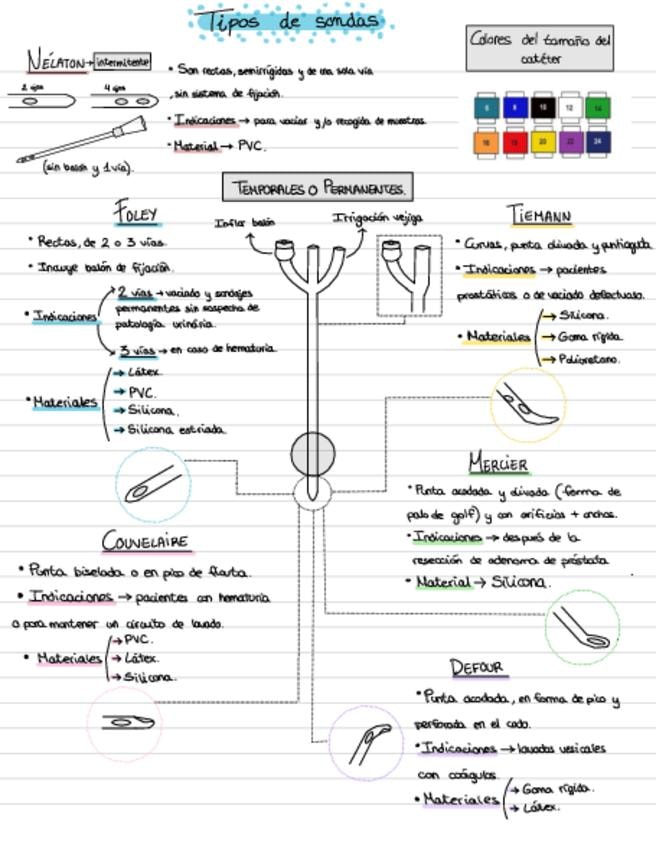 Tipos de sondas
Colores del tamaño del
catéter
6 8 10 12 14
16 18 20 22 24
NÉLATON → intermitente
2 ojos 4 ojos
(sin balón y 1 vía).
• Son rectas, semirrígidas y de una sola vía
, sin sistema de fijación.
• Indicaciones → para vaciar y/o recogida de muestras.
• Material → PVC.
TEMPORALES O PERMANENTES.
FOLEY
• Rectas, de 2 o 3 vías.
• Incluye balón de fijación.
• Indicaciones
2 vías → vaciado y sondajes
permanentes sin sospecha de
patología urinaria.
3 vías → en caso de hematuria.
• Materiales
→ Látex.
→ PVC.
→ Silicona.
→ Silicona estriada
Inflar balón
Irrigación vejiga
TIEMANN
• Curvas, punta olivada y puntiaguda
• Indicaciones → pacientes
prostáticos o de vaciado defectuoso.
• Materiales
→ Silicona.
→ Goma rígida
→ Poliuretano.
MERCIER
• Punta acodada y olivada (forma de
palo de golf) y con orificios + anchos.
• Indicaciones → después de la
resección de adenoma de próstata
• Material → Silicona.
COUVELAIRE
• Punta biselada o en pico de flauta.
• Indicaciones → pacientes con hematuria
o para mantener un circuito de lavado.
• Materiales
→ PVC.
→ Látex.
→ Silicona.
DEFOUR
• Punta acodada, en forma de pico y
perforada en el codo.
• Indicaciones → lavados vesicales
con coágulos.
• Materiales
→ Goma rígida.
→ Látex.